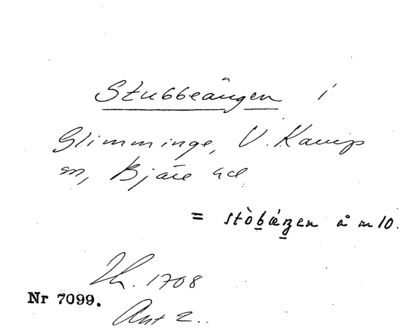 Stubbeängen i
Glimminge, V. Karup
sn, Bjäre hd
= stòbæ̀ŋen å m 10.
Lh. 1708
Nr 7099.
Ant 2..